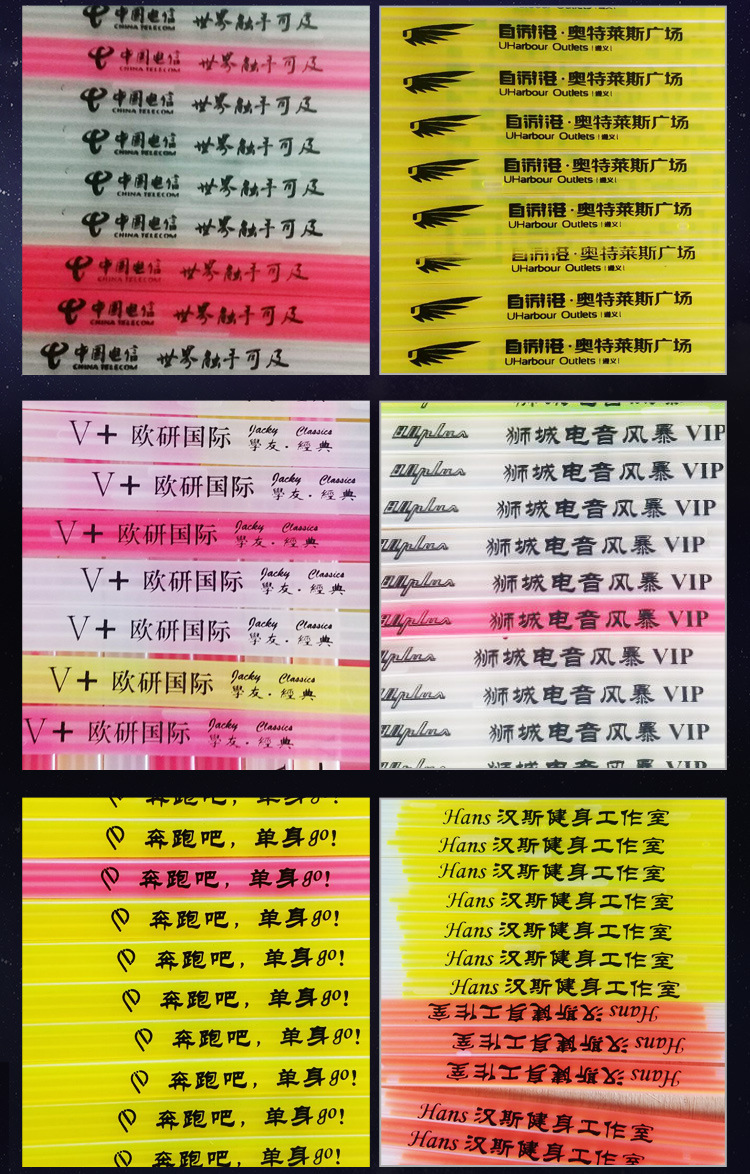 中国电信 世界触手可及
CHINA TELECOM
中国电信 世界触手可及
CHINA TELECOM
中国电信 世界触手可及
CHINA TELECOM
中国电信 世界触手可及
CHINA TELECOM
中国电信 世界触手可及
CHINA TELECOM
中国电信 世界触手可及
CHINA TELECOM
中国电信 世界触手可及
CHINA TELECOM
中国电信 世界触手可及
CHINA TELECOM
中国电信 世界触手可及
CHINA TELECOM
自游港·奥特莱斯广场
UHarbour Outlets |遵义|
自游港·奥特莱斯广场
UHarbour Outlets |遵义|
自游港·奥特莱斯广场
UHarbour Outlets |遵义|
自游港·奥特莱斯广场
UHarbour Outlets |遵义|
自游港·奥特莱斯广场
UHarbour Outlets |遵义|
自游港·奥特莱斯广场
UHarbour Outlets |遵义|
自游港·奥特莱斯广场
UHarbour Outlets |遵义|
自游港·奥特莱斯广场
UHarbour Outlets |遵义|
V+ 欧研国际 Jacky Classics
學友·經典
V+ 欧研国际 Jacky Classics
學友·經典
V+ 欧研国际 Jacky Classics
學友·經典
V+ 欧研国际 Jacky Classics
學友·經典
V+ 欧研国际 Jacky Classics
學友·經典
V+ 欧研国际 Jacky Classics
學友·經典
V+ 欧研国际 Jacky Classics
學友·經典
狮城电音风暴 VIP
狮城电音风暴 VIP
狮城电音风暴 VIP
狮城电音风暴 VIP
狮城电音风暴 VIP
狮城电音风暴 VIP
狮城电音风暴 VIP
狮城电音风暴 VIP
狮城电音风暴 VIP
奔跑吧，单身go!
奔跑吧，单身go!
奔跑吧，单身go!
奔跑吧，单身go!
奔跑吧，单身go!
奔跑吧，单身go!
奔跑吧，单身go!
奔跑吧，单身go!
奔跑吧，单身go!
奔跑吧，单身go!
Hans 汉斯健身工作室
Hans 汉斯健身工作室
Hans 汉斯健身工作室
Hans 汉斯健身工作室
Hans 汉斯健身工作室
Hans 汉斯健身工作室
Hans 汉斯健身工作室
Hans 汉斯健身工作室
Hans 汉斯健身工作室
Hans 汉斯健身工作室
Hans 汉斯健身工作室
Hans 汉斯健身工作室